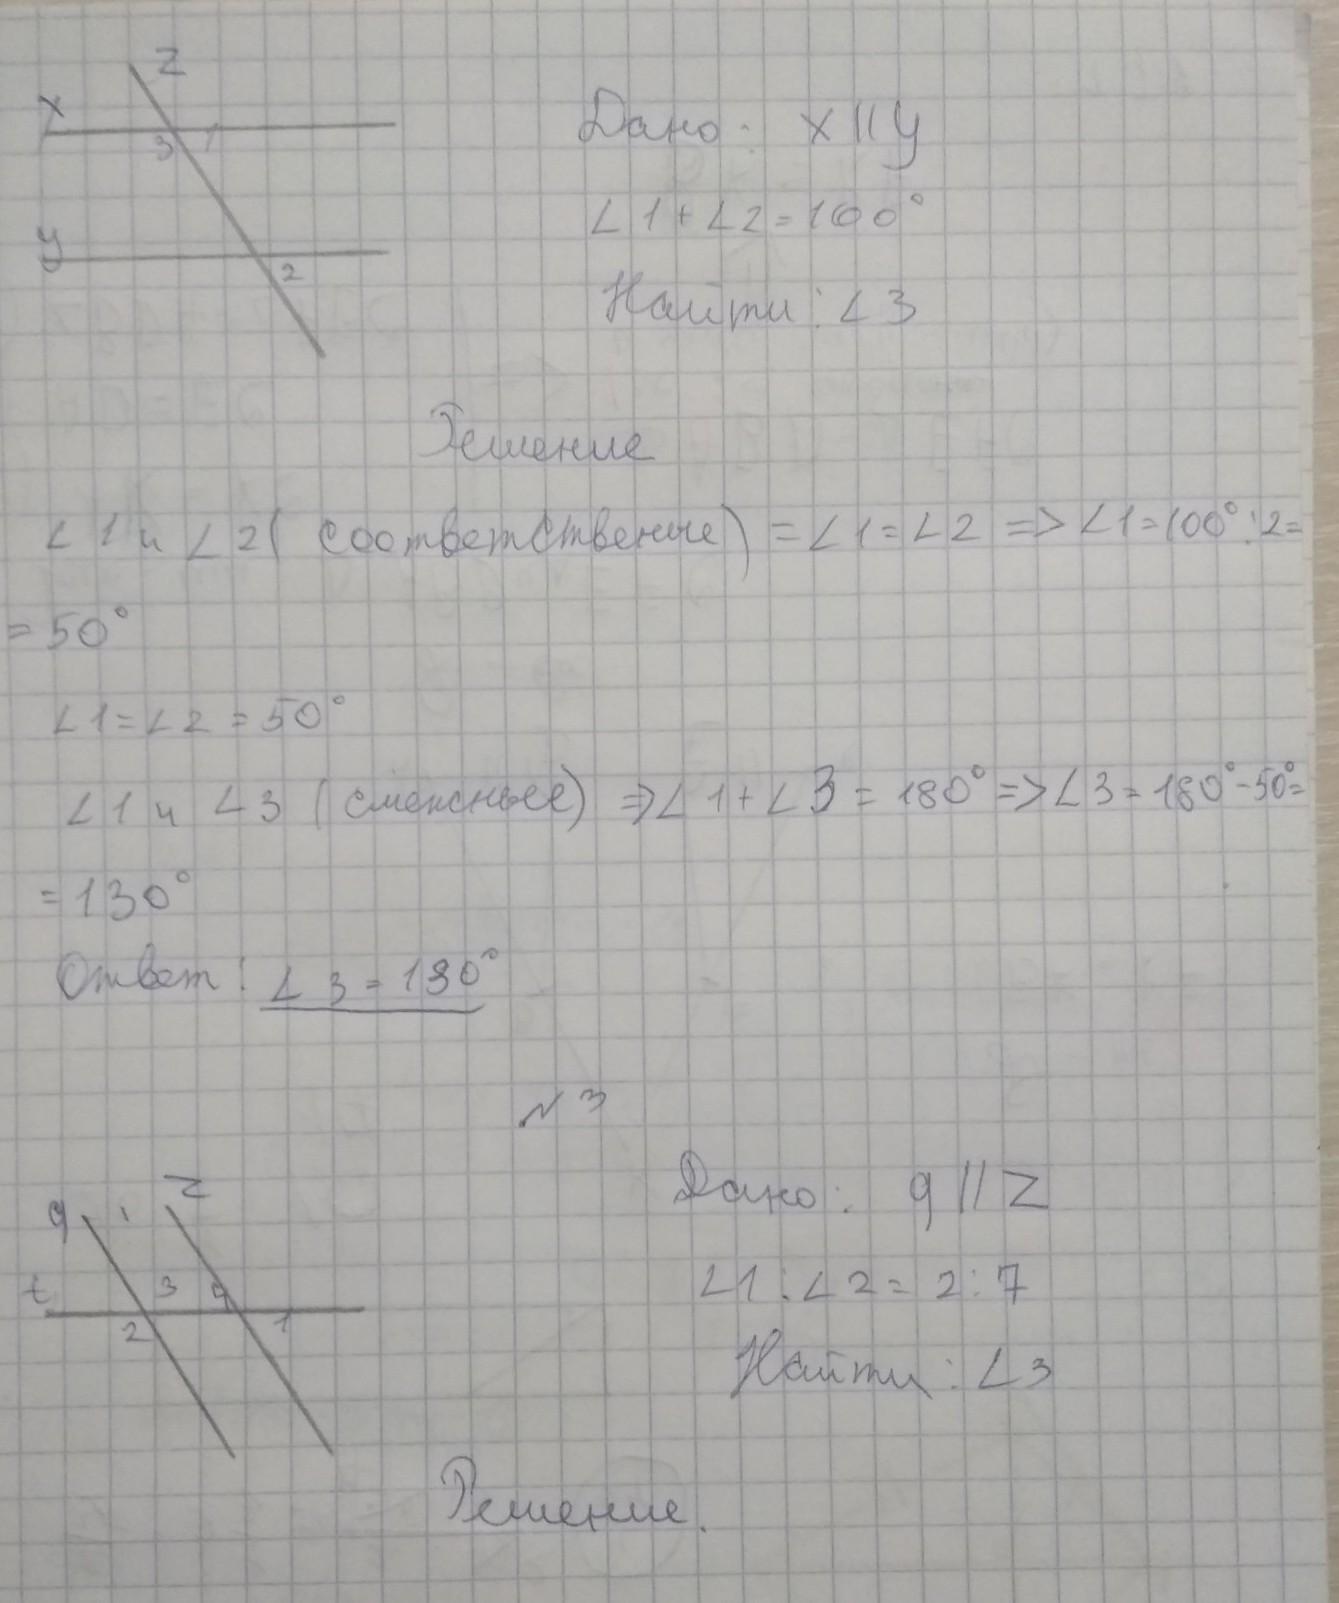 z
x
3 1
y
2
Дано: x || y
∠1 + ∠2 = 100°
Найти: ∠3
Решение
∠1 и ∠2 (соответственные) = ∠1 = ∠2 => ∠1 = 100° : 2 =
= 50°
∠1 = ∠2 = 50°
∠1 и ∠3 (смежные) => ∠1 + ∠3 = 180° => ∠3 = 180° - 50° =
= 130°
Ответ: ∠3 = 130°
N 3
q z
t 3 4
2 1
Дано: q || z
∠1 : ∠2 = 2 : 7
Найти: ∠3
Решение.